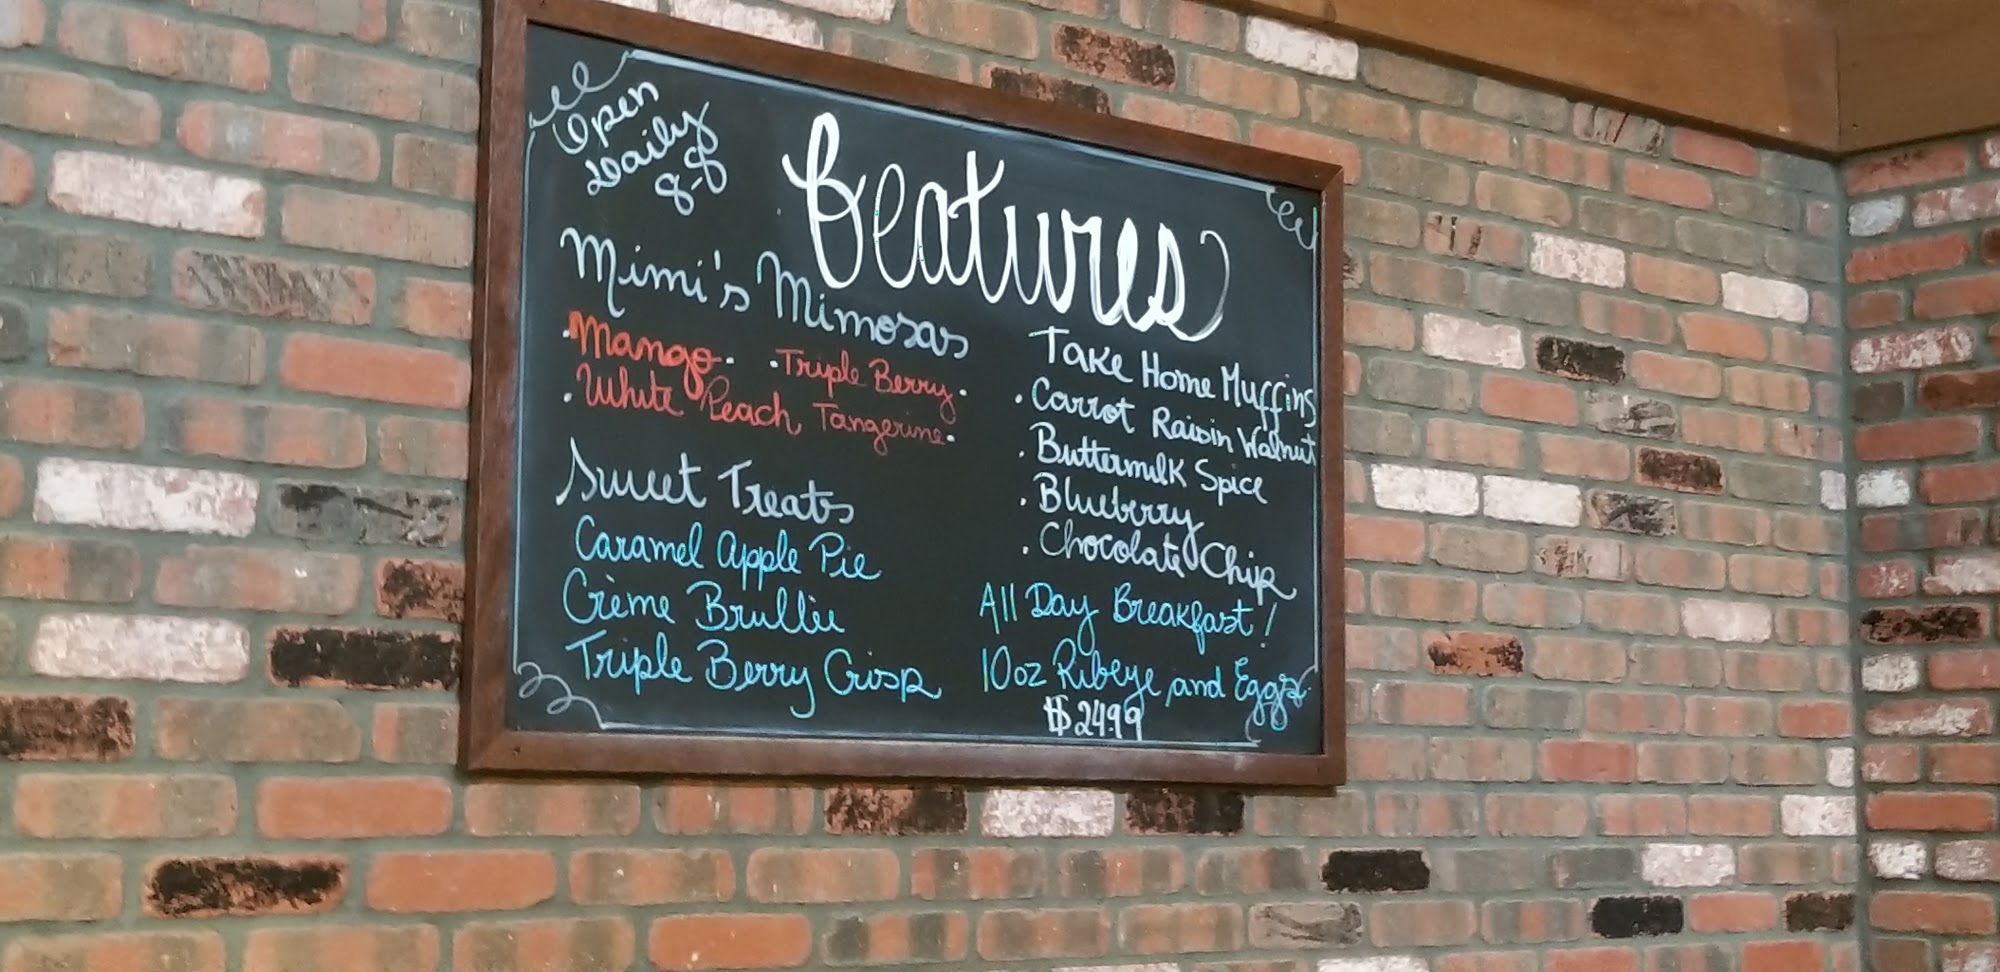 Open
Daily
8-8
Features
Mimi's Mimosas
·Mango· ·Triple Berry·
·White Peach Tangerine·
Sweet Treats
Caramel Apple Pie
Crème Brullée
Triple Berry Crisp
Take Home Muffins
·Carrot Raisin Walnut
·Buttermilk Spice
·Blueberry
·Chocolate Chip
All Day Breakfast!
10oz Ribeye and Eggs
$24.99